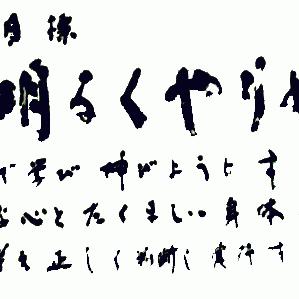 目標
明るくやりぬ
で学び 伸びようとす
な心とたくましい身体
を正しく判断し実行す